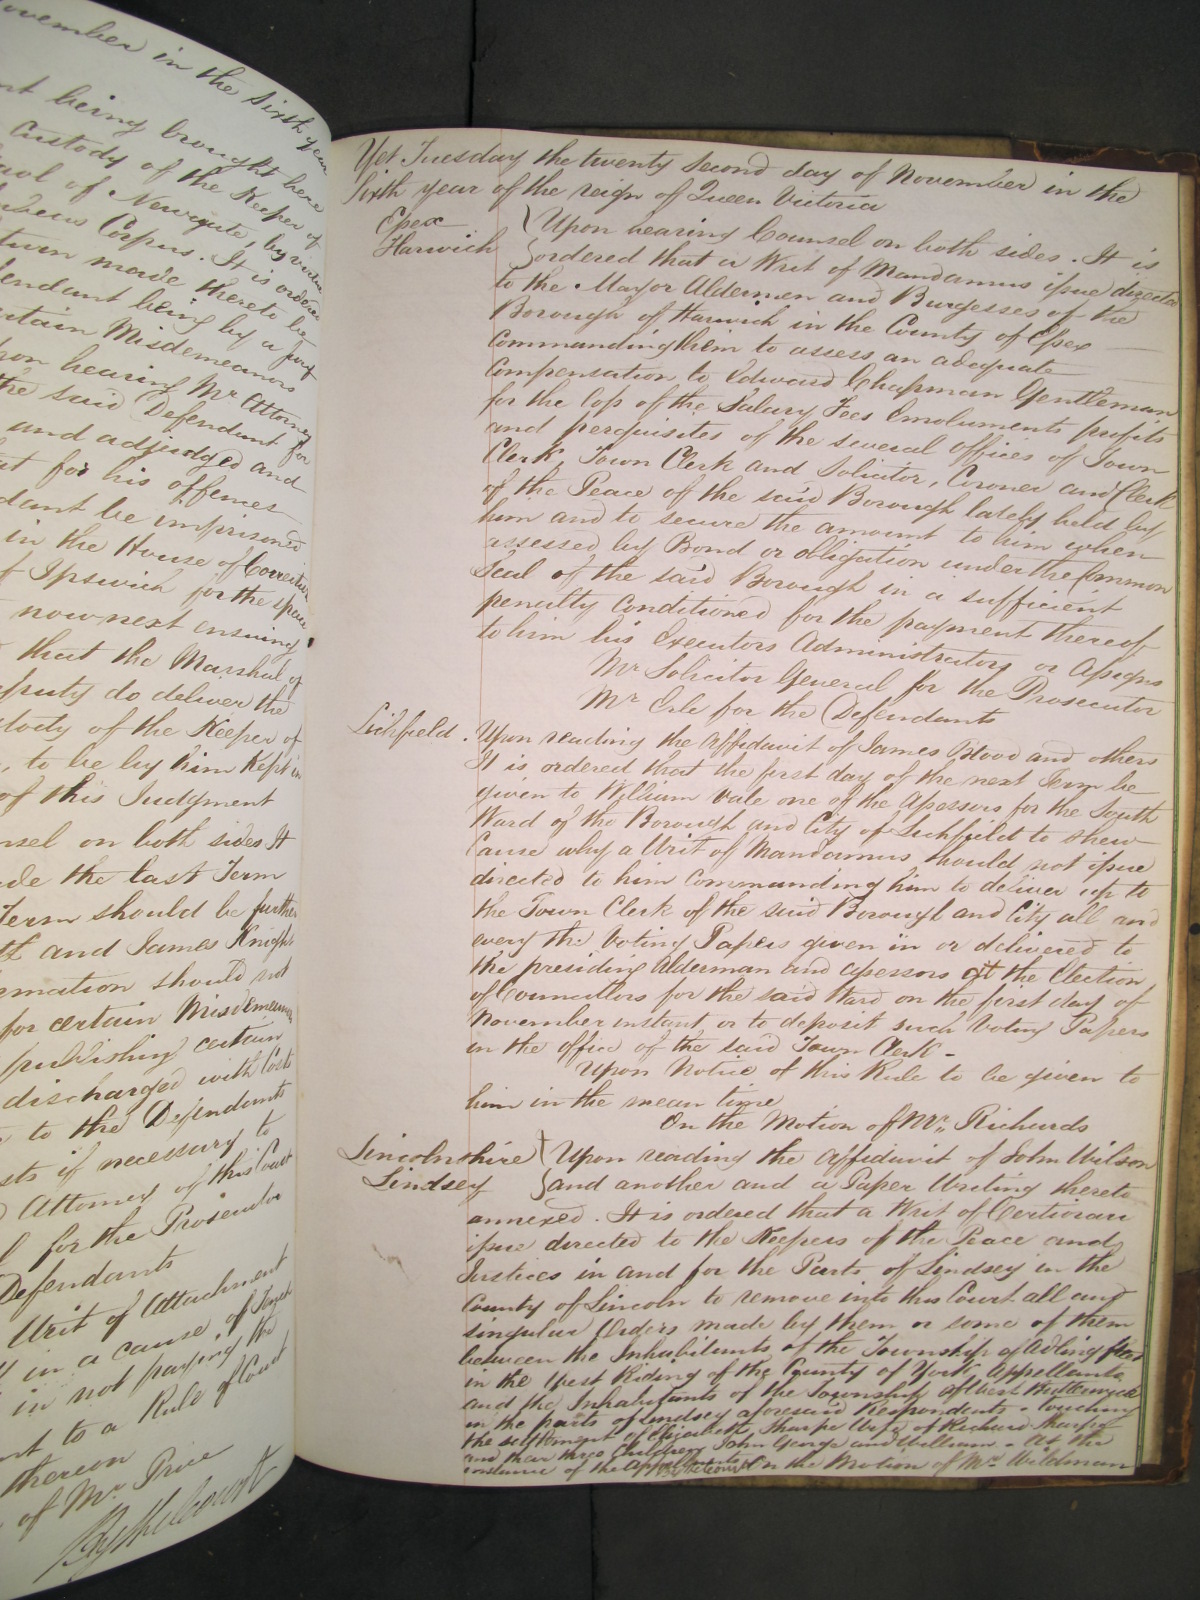 ovember in the Sixth year
nt being brought here
Custody of the Keeper of
Gaol of Newgate, by virtue
abeas Corpus. It is ordered
turn made thereto be
endant being by a Jury
rtain Misdemeanors
pon hearing Mr. Attorney
the said Defendant for
and adjudged and
at for his offences
dant be imprisoned
in the House of Correction
f Ipswich for the space
now next ensuing
that the Marshal of
eputy do deliver the
stody of the Keeper of
, to be by him Kept in
of this Judgment
nsel on both sides It
ade the last Term
Term should be further
th and James Knight
rmation should not
for certain Misdemeanors
publishing certain
discharged with Costs
to the Defendants
sts if necessary to
d Attorney of this Court
l for the Prosecutor
Defendants
Writ of Attachment
in a cause of
in not paying the
nt to a Rule of Court
thereon
of Mr. Price
By the Court
Yet Tuesday the twenty second day of November in the
Sixth year of the reign of Queen Victoria
Essex
Harwich
Upon hearing Counsel on both sides. It is
ordered that a Writ of Mandamus issue directed
to the Mayor Aldermen and Burgesses of the
Borough of Harwich in the County of Essex
Commanding them to assess an adequate
Compensation to Edward Chapman Gentleman
for the loss of the Salary Fees Emoluments profits
and perquisites of the several offices of Town
Clerk, Town Clerk and Solicitor, Coroner and Clerk
of the Peace of the said Borough lately held by
him and to secure the amount to him when
assessed by Bond or obligation under the Common
Seal of the said Borough in a sufficient
penalty conditioned for the payment thereof
to him his Executors Administrators or Assigns
Mr Solicitor General for the Prosecutor
Mr Erle for the Defendants
Lichfield. Upon reading the affidavit of James Blood and others
It is ordered that the first day of the next Term be
given to William Vale one of the Assessors for the South
Ward of the Borough and City of Lichfield to shew
Cause why a Writ of Mandamus should not issue
directed to him Commanding him to deliver up to
the Town Clerk of the said Borough and City all and
every the Voting Papers given in or delivered to
the presiding Alderman and assessors at the Election
of Councillors for the said Ward on the first day of
November instant or to deposit such Voting Papers
in the office of the said Town Clerk -
Upon Notice of this Rule to be given to
him in the mean time
On the Motion of Mr. Richards
Lincolnshire
Lindsey
Upon reading the affidavit of John Wilson
and another and a Paper Writing thereto
annexed. It is ordered that a Writ of Certiorari
issue directed to the Keepers of the Peace and
Justices in and for the Parts of Lindsey in the
County of Lincoln to remove into this Court all and
singular Orders made by them or some of them
between the Inhabitants of the Township of Adlingfleet
in the West Riding of the County of York Appellants
and the Inhabitants of the Township of West Butterwick
in the parts of Lindsey aforesaid Respondents touching
the settlement of Elizabeth Sharpe Wife of Richard Sharpe
and their three Children John George and William. At the
instance of the Appellants On the Motion of Mr. Wildman
By the Court